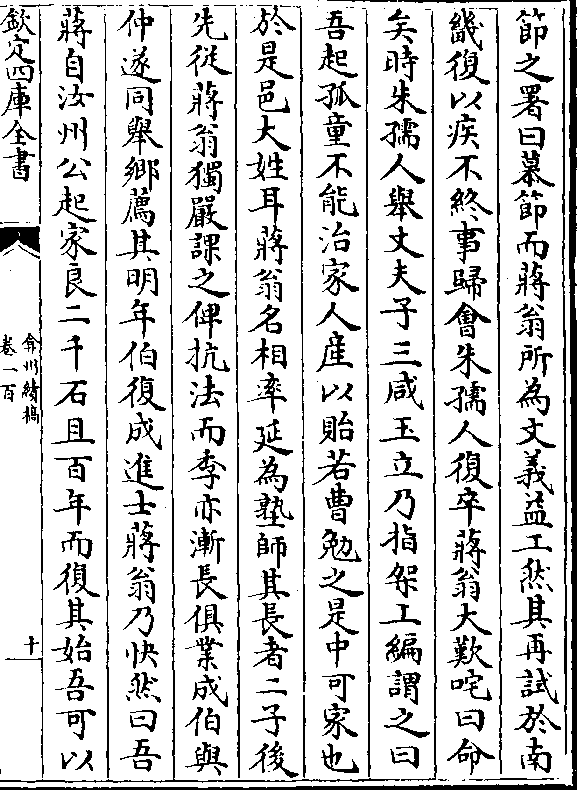 節之署曰慕節而蔣翁所為文義益工然其再試於南
畿復以疾不終事歸會朱孺人復卒蔣翁大歎咤曰命
矣時朱孺人舉丈夫子三咸玉立乃指架上編謂之曰
吾起孤童不能治家人產以貽若曹勉之是中可家也
於是邑大姓耳蔣翁名相率延為塾師其長者二子後
先從蔣翁獨嚴課之俾抗法而季亦漸長俱業成伯與
仲遂同舉鄉薦其明年伯復成進士蔣翁乃快然曰吾
蔣自汝州公起家良二千石且百年而復其始吾可以
欽定四庫全書
弇州續稿
卷一百
十